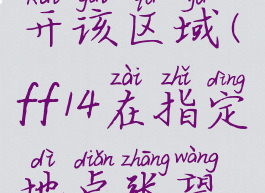 开该区域(
zài zhǐ dìng
ff14在指定
dì diǎn zhāng wàng
地点张望